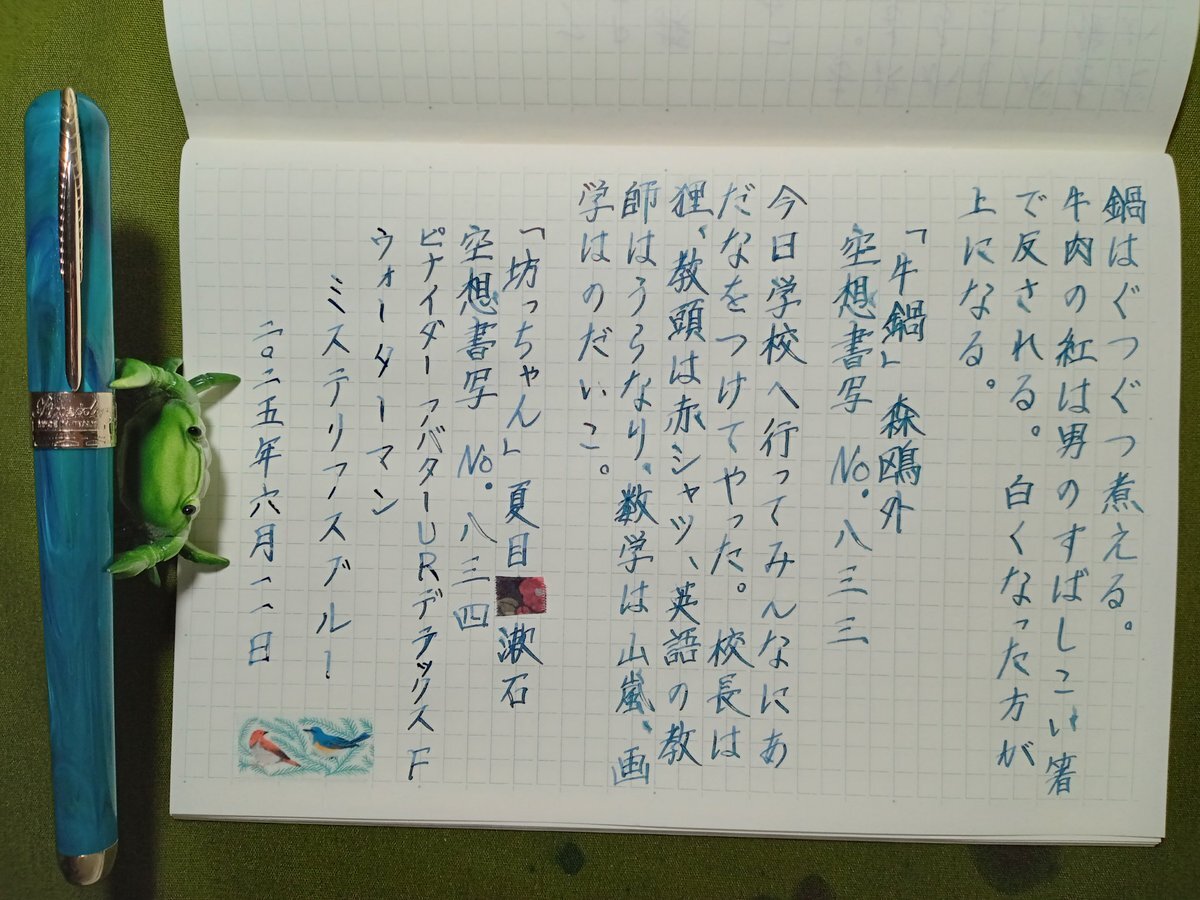 鍋はぐつぐつ煮える。
牛肉の紅は男のすばしこい箸
で反される。白くなった方が
上になる。
「牛鍋」 森鴎外
空想書写 No.八三三
今日学校へ行ってみんなにあ
だなをつけてやった。校長は
狸、教頭は赤シャツ、英語の教
師はうらなり、数学は山嵐、画
学はのだいこ。
「坊っちゃん」夏目漱石
空想書写 No.八三四
ピナイダー アバターUR.デラックス F
ウォーターマン
ミステリアスブルー
二〇二五年六月一一日